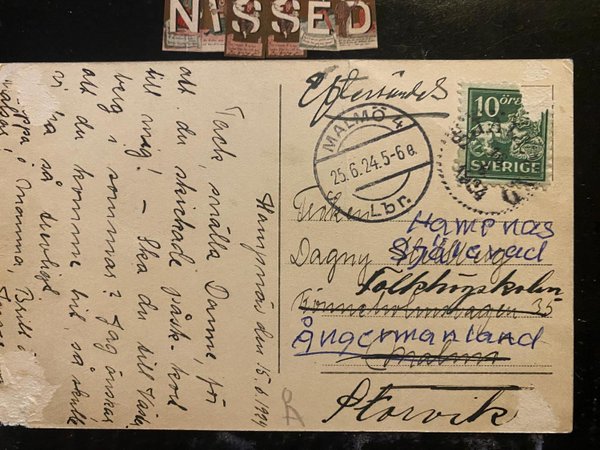 NISSED
Eftersändes
MALMÖ 4
25.6.24.5-6 e.
Lbr.
10 öre
SVERIGE
Fröken
Hampnäs
Dagny
Själevad
Folkhögskolan
35
Ångermanland
Malmö
Storvik
Hampnäs den 15.6.1924
Tack, snälla Danne, för
att du skickade påsk-kort
till mig! – Ska du till
berg i sommar? Jag önskar
att du komme hit, så skulle
vi ha så trevligt
i Mamma,